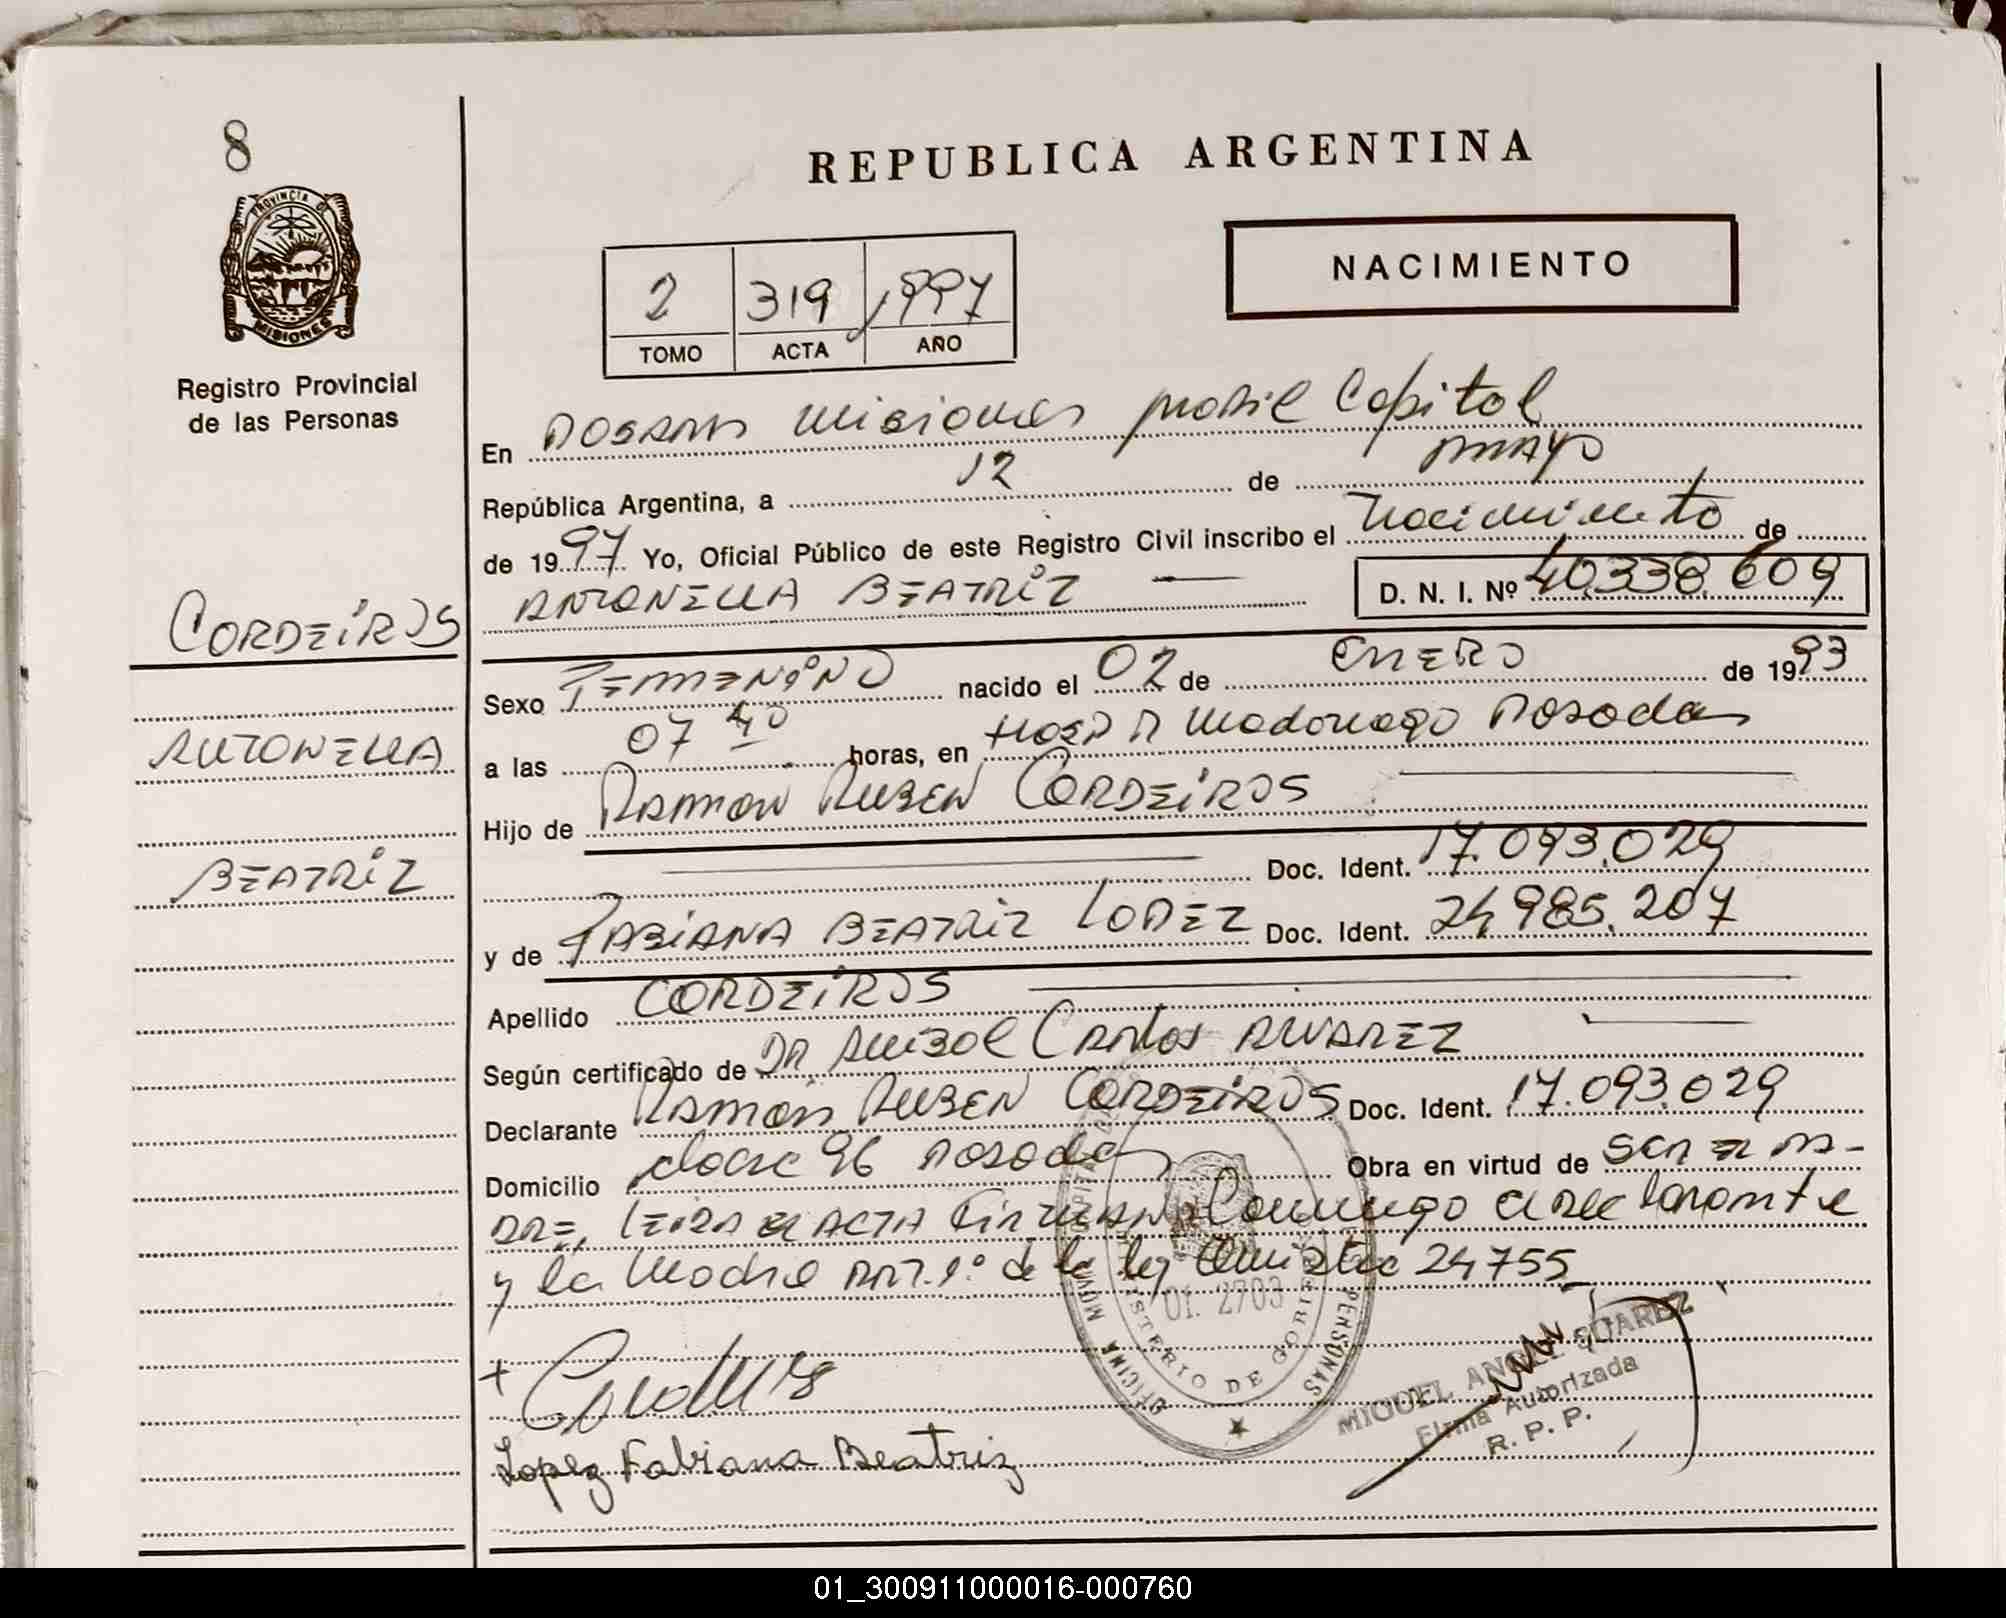 8
REPUBLICA ARGENTINA
PROVINCIA DE
MISIONES
Registro Provincial
de las Personas
2 319 1997
TOMO ACTA AÑO
NACIMIENTO
En POSADAS Misiones movil Capital
República Argentina, a 12 de MAYO
de 1997 Yo, Oficial Público de este Registro Civil inscribo el Nacimiento de
ANTONELLA BEATRIZ D. N. I. Nº 40.338.609
CORDEIROS
ANTONELLA
BEATRIZ
Sexo FEMMENINO nacido el 02 de ENERO de 1993
a las 07 40 horas, en HOSP R Madariaga Posadas
Hijo de RAMON RUBEN CORDEIROS
Doc. Ident. 17.093.029
y de FABIANA BEATRIZ LOPEZ Doc. Ident. 24.985.207
Apellido CORDEIROS
Según certificado de DR Anibal CARLOS ALVAREZ
Declarante RAMON RUBEN CORDEIROS Doc. Ident. 17.093.029
Domicilio 96 Posadas Obra en virtud de SER EL PA-
DRE, LEIDA el ACTA FIRMAN Conmigo el declarante
y la Madre ART. 1º de la ley 24755
OFICINA MOVIL CAPITAL
PERSONAS
MINISTERIO DE GOBIERNO
01. 2703
MIGUEL ANGEL SUAREZ
Firma Autorizada
R. P. P.
Lopez Fabiana Beatriz
01_300911000016-000760